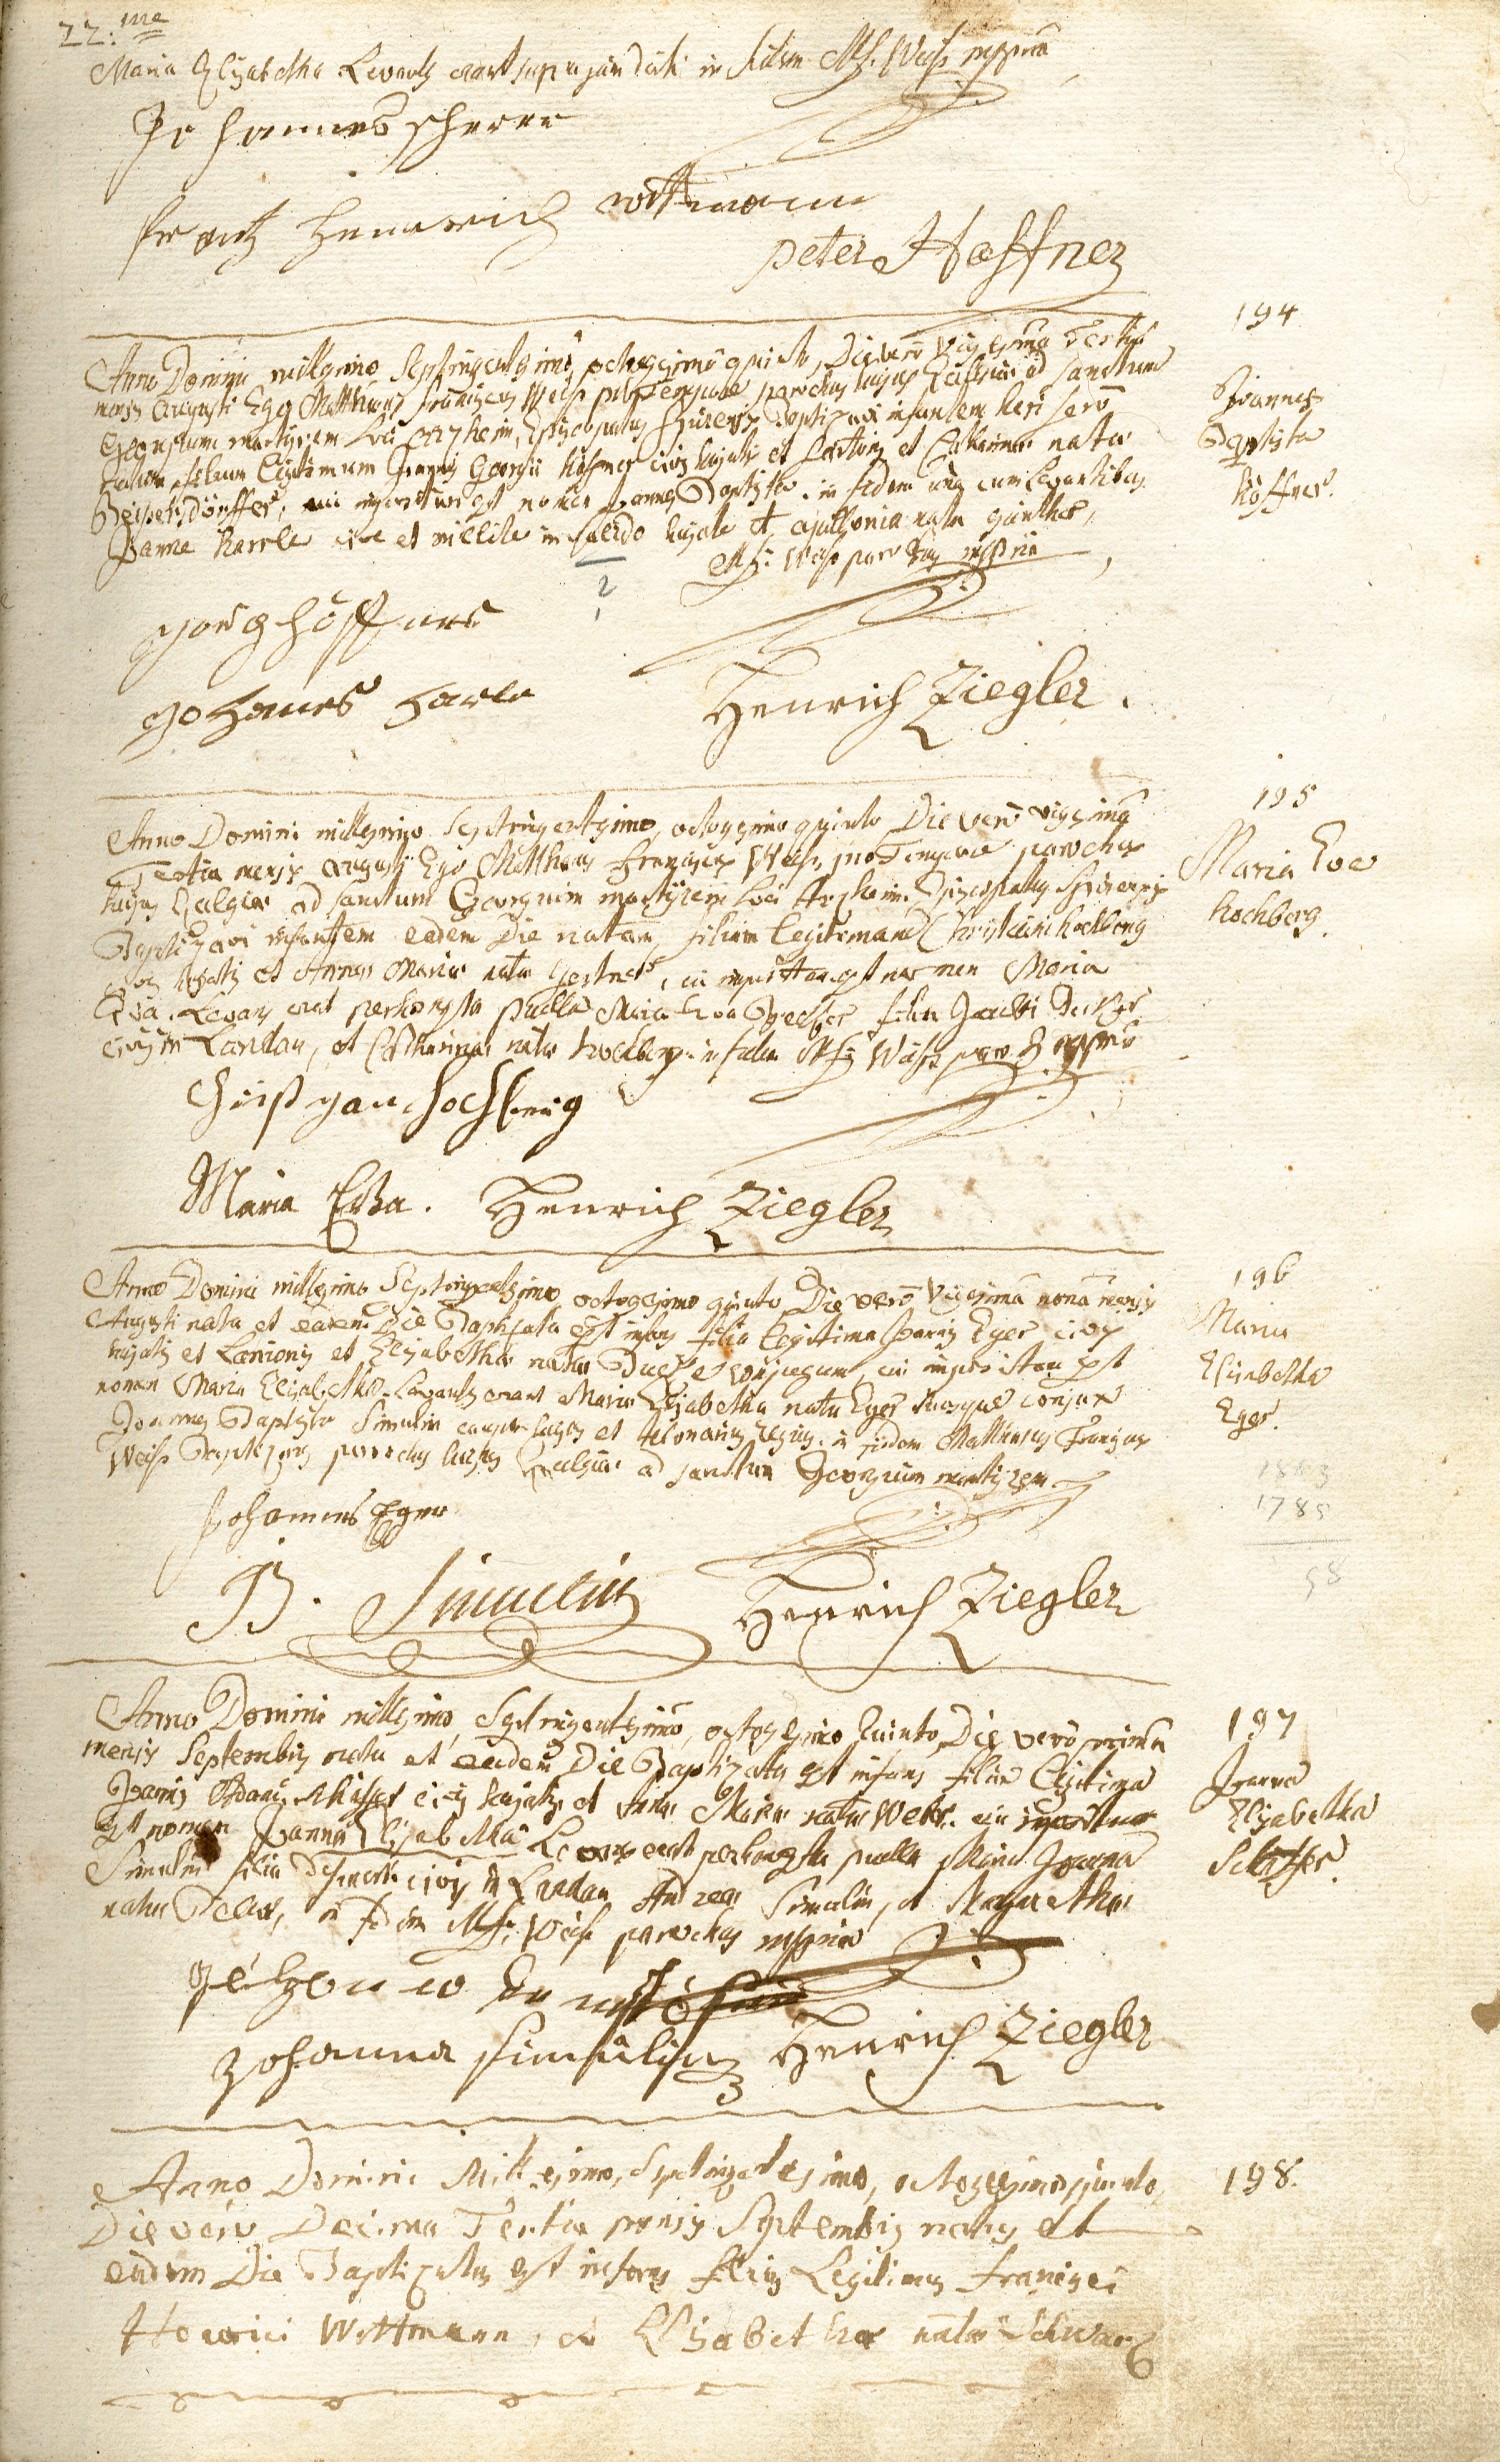 22.me
Maria Elisabetha Levantes erant supra jam dicti in fidem Mf. Weiss mppria
Johannes scherer
frantz Heinrich wittmann
peter Haffner
194
Anno Domini millesimo Septingentesimo octogesimo quinto, Die vero vigesima Tertia
mensis Augusti Ego Matthaeus franciscus Weiss pro Tempore parochus hujus Ecclesiae ad sanctum
Georgium martyrem loci Herxheim, Episcopatus Spirensis Baptizavi infantem heri sero
natum filium legitimum Joannis Georgii Höfner civis hujatis et sartoris et Catharinae natae
cui impositum est nomen Joannes Baptista. in fidem una cum Levantibus
Joanne Harrle cive et milite in hujate et Apollonia nata günther,
Mf: Weiss parochus mppria
Joannes
Baptista
Höffner.
2
görg höffner
Johannes Harle
Henrich Ziegler.
195
Anno Domini millesimo Septingentesimo, octogesimo quinto Die vero vigesima
Tertia mensis Augusti Ego Matthaeus franciscus Weiss, pro Tempore parochus
hujus Ecclesiae ad sanctum Georgium martyrem loci Herxheim Episcopatus Spirensis
Baptizavi infantem eadem Die natam, filiam legitimam Christiani hochberg
civis hujatis et Annae Mariae natae gertner, cui impositum est nomen Maria
Eva. Levans erat perhonesta puella Maria Eva Becker filia Jacobi Becker
civis in Landau, et Catharinae natae hochberg. in fidem Mf: Weiss paroch mppria
Maria Eva
hochberg.
Christian hochberg
Maria Eva. Henrich Ziegler
196
Anno Domini millesimo Septingentesimo octogesimo quinto Die vero Vigesima nona mensis
Augusti nata et eadem Die Baptizata est infans filia legitima Joannis Eger civis
hujatis et Lanionis et Elisabethae natae conjugum, cui impositum est
nomen Maria Elisabetha. Levantes erant Maria Elisabetha nata Eger suusque conjux
Joannes Baptista Simulin et telonarius regius. in fidem Matthaeus Franciscus
Weiss Baptizans parochus hujus Ecclesiae ad sanctum Georgium martyrem
Maria
Elisabetha
Eger.
1843
1785
58
Johannes Eger
B. Simulin Henrich Ziegler
197
Anno Domini millesimo, Septingentesimo, octogesimo Quinto, Die vero prima
mensis Septembris nata et eadem Die Baptizata est infans filia legitima
Joannis Adami Schäffer civis hujatis et Annae Mariae natae Weber. cui impositum
est nomen Joanna Elisabetha Levans erat perhonesta puella Maria Joanna
Simulin filia defuncti civis in Landau Andreae Simulin, et Margarethae
natae in fidem Mf: Weiss parochus mppria
Joanna
Elisabetha
Schäffer.
Johanna simulin Henrich Ziegler
198.
Anno Domini Millesimo, Septingentesimo, octogesimo quinto,
Die vero Decima Tertia mensis Septembris natus et
eadem Die Baptizatus est infans filius Legitimus francisci
Henrici Wittmann, et Elisabethae natae Schwartz